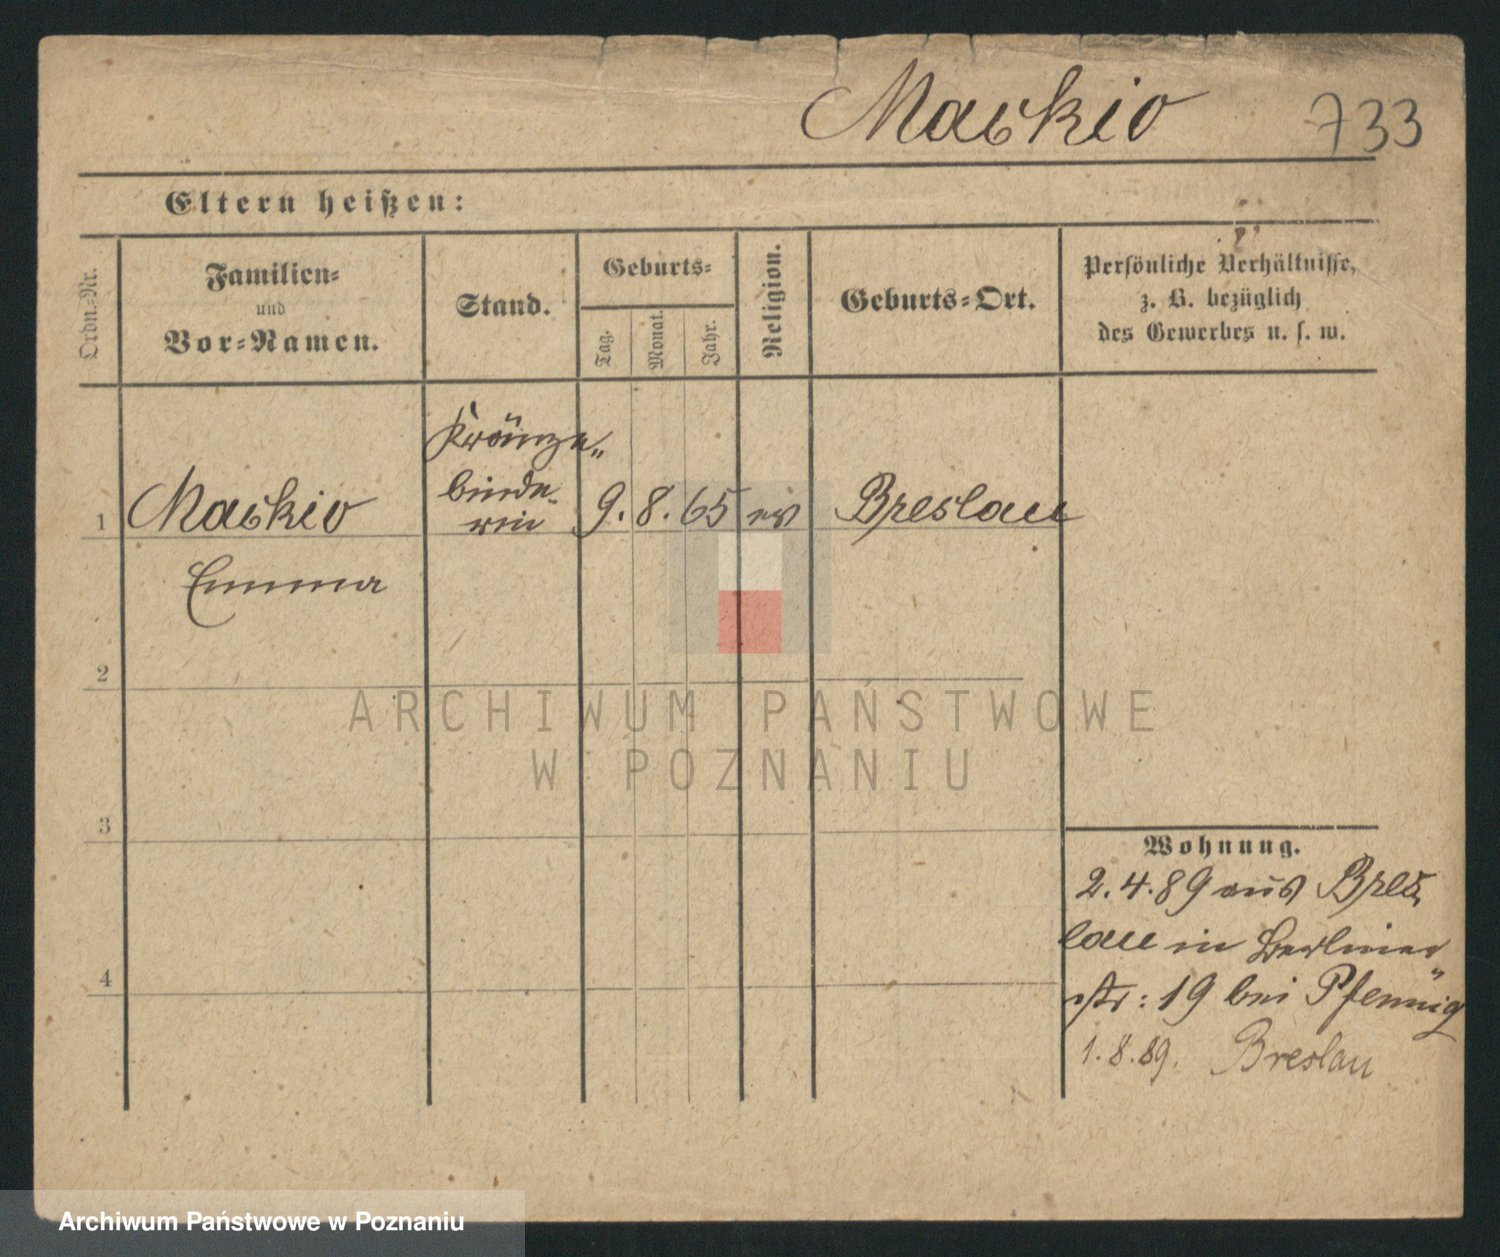 Maskio 733
Eltern heißen:
Ordn.-Nr.
Familien-
und
Vor-Namen.
Stand.
Geburts-
Tag.
Monat.
Jahr.
Religion.
Geburts-Ort.
Persönliche Verhältnisse,
z. B. bezüglich
des Gewerbes u. s. w.
1 Maskio
Emma
Kränze-
binde-
rin
9. 8. 65 ev Breslau
2
3
4
ARCHIWUM PAŃSTWOWE
W POZNANIU
Wohnung.
2.4.89 aus Bres
lau in Berliner
str: 19 bei Pfennig
1.8.89. Breslau
Archiwum Państwowe w Poznaniu